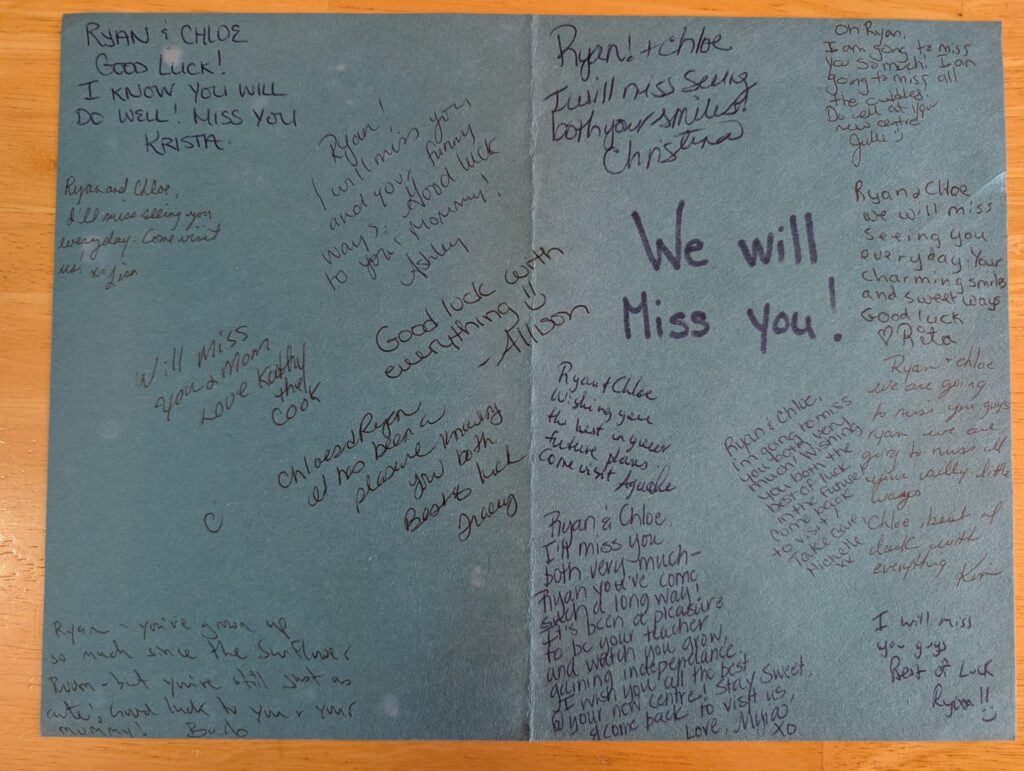 RYAN & CHLOE
GOOD LUCK!
I KNOW YOU WILL
DO WELL! MISS YOU
KRISTA.
Ryan and Chloe,
I'll miss seeing you
everyday - Come visit
us! xo Lisa
Ryan!
I will miss you,
and your funny
ways. Good luck
to you & Mommy!
Ashley
Will miss
you & Mom
Love Kathy
the
Cook
Good luck with
everything!!
- Allison
Chloe & Ryan
it has been a
pleasure knowing
you both
Best of luck
Tracey
Ryan - you've grown up
so much since the Sunflower
Room - but you're still just as
cute! Good luck to you & your
mummy!
Ryan! + Chloe
I will miss seeing
both your smiles!
Christina
Oh Ryan,
I am going to miss
you so much! I am
going to miss all
the cuddles
Do well at your
new centre
Julie
We will
Miss you!
Ryan & Chloe
we will miss
seeing you
everyday. Your
charming smiles
and sweet ways
Good luck
♡ Rita
Ryan & Chloe
Wishing you
the best in your
future plans
Come visit
Ryan & Chloe,
I'm going to miss
you both very
much! Wishing
you both the
best of luck
in the future
Come back
to visit!
Take care,
Michelle
xx
Ryan + chloe
we are going
to miss you guys
ryan we are
going to miss all
your silly little
ways
Chloe, best of
luck with
everything Kim
Ryan & Chloe,
I'll miss you
both very much -
Ryan you've come
such a long way!
It's been a pleasure
to be your teacher
and watch you grow,
gaining independance.
I wish you all the best
@ your new centre! Stay Sweet,
& come back to visit us,
Love, Myia
XO
I will miss
you guys
Best of Luck
Ryan!!